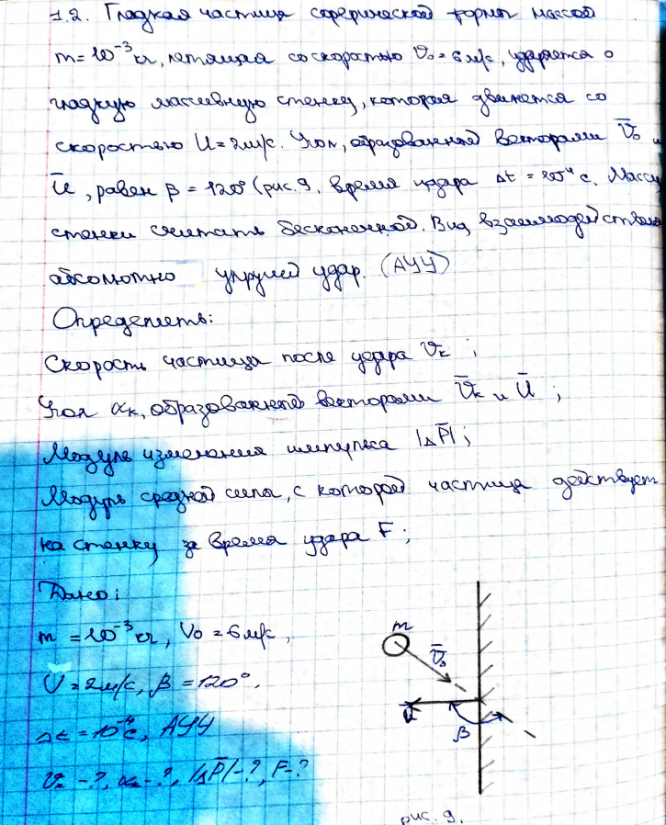 1.2. Гладкая частица сферической формы массой
m=10⁻³кг, летящая со скоростью V̄₀=6м/с, ударяется о
гладкую массивную стенку, которая движется со
скоростью U=2м/с. Угол, образованный векторами V̄₀ и
ū, равен β=120° (рис.9, время удара Δt = 10⁻⁴ с. Массу
стенки считать бесконечной. Вид взаимодействия
абсолютно упругий удар. (АУУ)
Определить:
Скорость частицы после удара Vк ;
Угол αк, образованный векторами V̄к и Ū ;
Модуль изменения импульса |ΔP̄|;
Модуль средней силы, с которой частица действует
на стенку за время удара F;
Дано:
m =10⁻³кг, V₀=6м/с,
U=2м/с, β=120°.
Δt=10⁻⁴с, АУУ
Vк-?, αк-?, |ΔP̄|-?, F-?
m
V̄₀
ū
β
рис. 9.